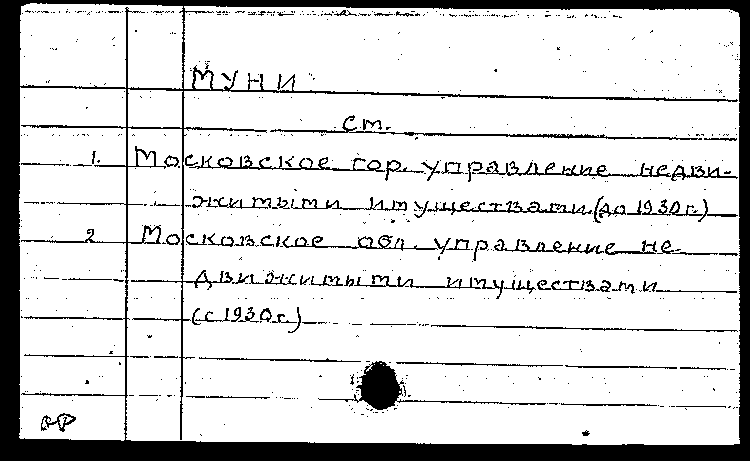 МУНИ
см.
1. Московское гор. управление недви-
жимыми имуществами. (до 1930 г.)
2 Московское обл. управление не-
движимыми имуществами
(с 1930 г.)